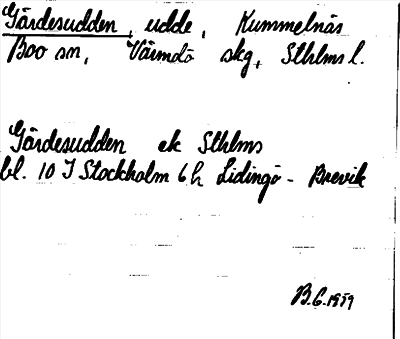 Gärdesudden, udde, Kummelnäs
Boo sn, Värmdö skg, Sthlms l.
Gärdesudden ek Sthlms
bl. 10 I Stockholm 6 h Lidingö - Brevik
B.G. 1959